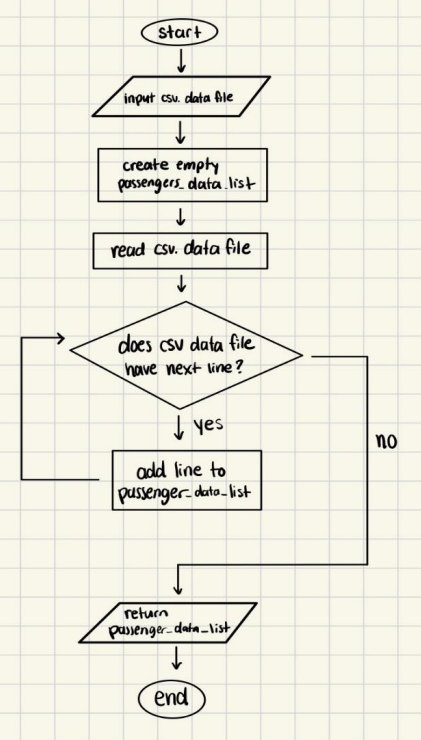 start
input csv. data file
create empty
passengers_data_list
read csv. data file
does csv data file
have next line?
yes
no
add line to
passenger_data_list
return
passenger_data_list
end